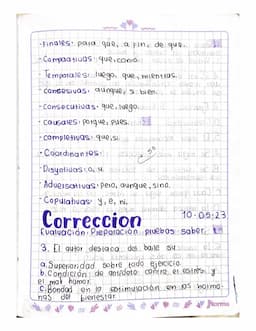 · Finales: para que, a fin, de que.
· Comparativas: que, como.
· Temporales: luego, que, mientras.
· consesivas: aunque, si bien.
· consecutivas: que, luego.
· causales: porque, pues.
· completivas: que, si.
· Coordinantes:
· Disyuntivas: o, u.
· Adversativas: pero, aunque, sino.
· Copulativas: y, e, ni.
Correccion 10-05-23
Evaluación: Preparación pruebas saber.
3. El autor destaca del baile su
a. Superioridad sobre todo ejercicio.
b. Condición de antídoto contra el estrés y
el mal humor.
c. Bondad en la estimulación en las hormo-
nas del bienestar.
Norma